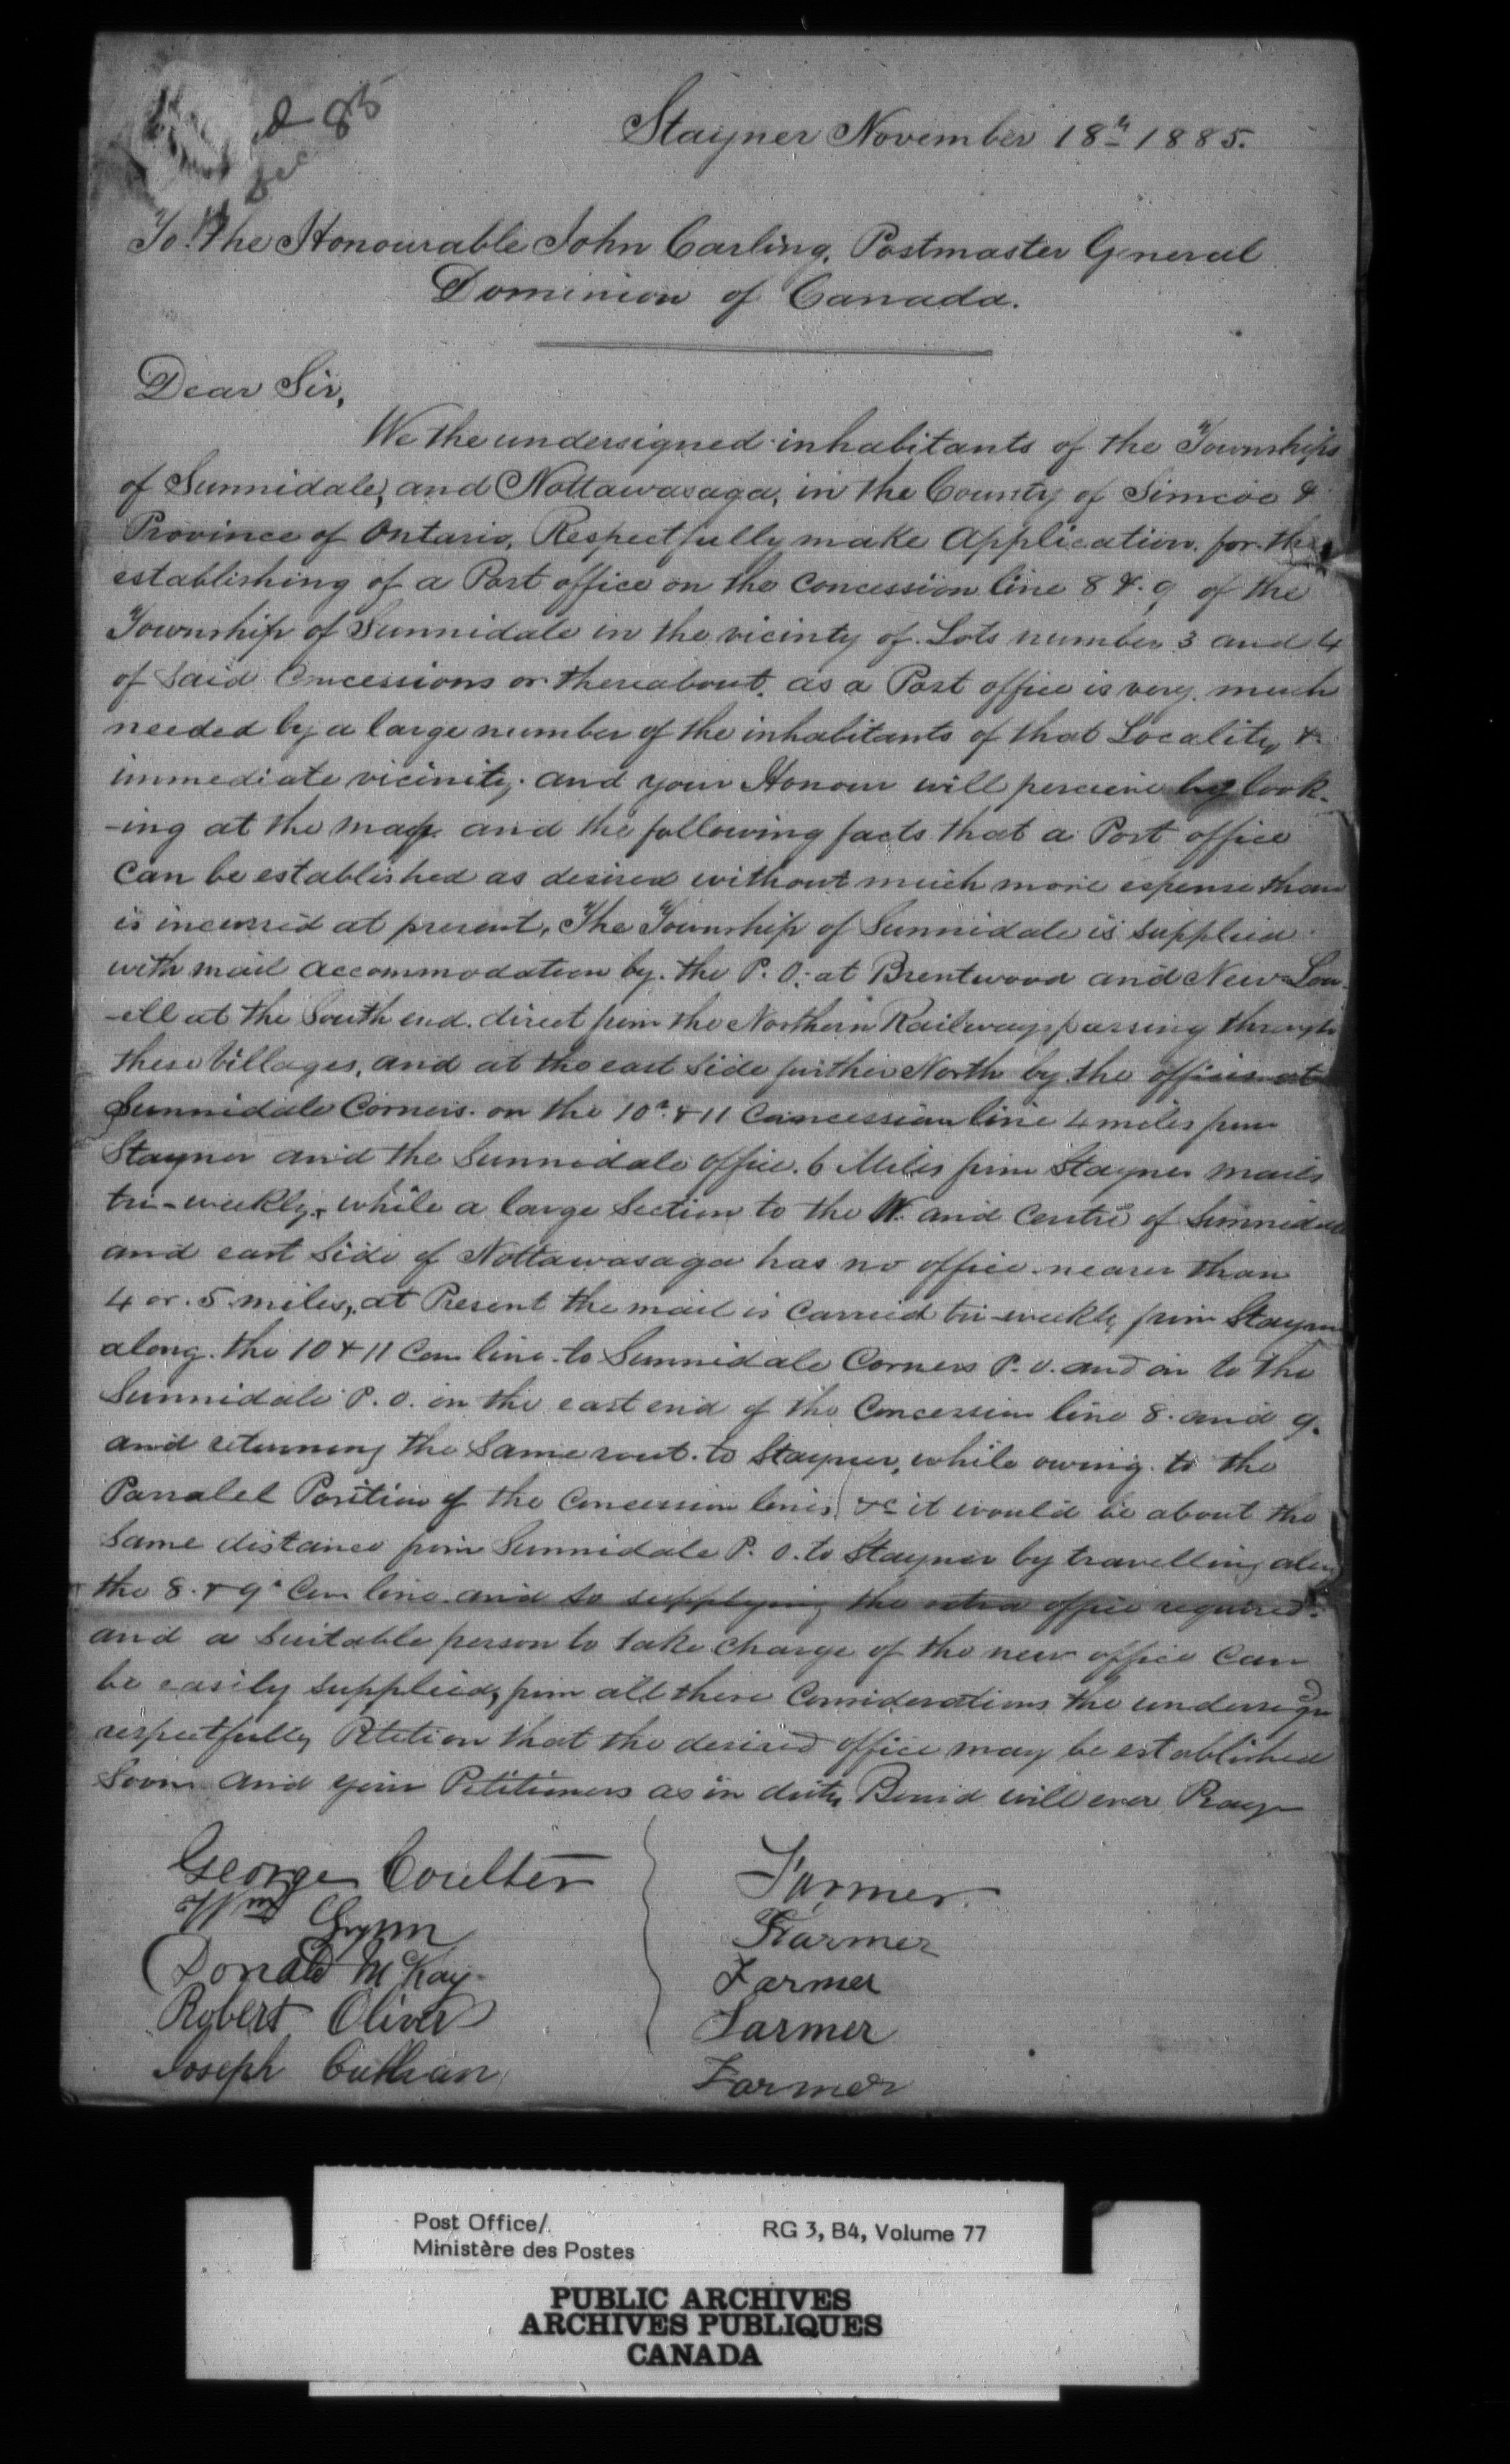 85
Stayner November 18th 1885.
To The Honourable John Carling, Postmaster General
Dominion of Canada.
Dear Sir,
We the undersigned inhabitants of the Townships
of Sunnidale, and Nottawasaga, in the County of Simcoe &
Province of Ontario, Respectfully make Application for the
establishing of a Post office on the Concession line 8 & 9 of the
Township of Sunnidale in the vicinty of Lots number 3 and 4
of said Concessions or thereabout. as a Post office is very much
needed by a large number of the inhabitants of that Locality, &
immediate vicinity. and your Honour will perceive by look-
-ing at the map and the following facts that a Post office
can be established as desired without much more espense than
is incurred at present, The Township of Sunnidale is supplied
with mail accommodation by the P. O. at Brentwood and New Low-
-ell at the South end direct from the Northern Railway passing through
these Villages, and at the east side further North by the offices at
Sunnidale Corners on the 10th & 11 Concession line 4 miles from
Stayner and the Sunnidale office 6 Miles from Stayner mails
tri-weekly, while a large Section to the W. and Centre of Sunnidale
and east side of Nottawasaga has no office nearer than
4 or 5 miles, at Present the mail is carried tri-weekly from Stayner
along the 10 & 11 Con line to Sunnidale Corners P. O. and on to the
Sunnidale P. O. in the east end of the Concession line 8 and 9.
and returning the same rout to Stayner, while owing to the
Paralel Position of the Concession lines, &c it would be about the
same distance from Sunnidale P. O. to Stayner by travelling along
the 8 & 9th Con line and so supplying the extra office required.
and a suitable person to take charge of the new office can
be easily supplied, from all these Considerations the undersigned
respectfully Petition that the desired office may be established
Soon and your Petitioners as in duty Bound will ever Pray
George Coulter Farmer
Wm Gynn Farmer
Donald McKay Farmer
Robert Oliver Farmer
Joseph Farmer
Post Office/
Ministère des Postes
RG 3, B4, Volume 77
PUBLIC ARCHIVES
ARCHIVES PUBLIQUES
CANADA